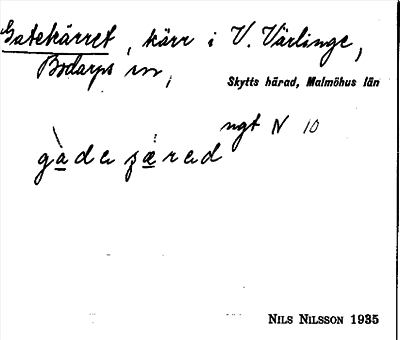 Gatekärret, kärr i V. Värlinge,
Bodarps sn,
Skytts härad, Malmöhus län
ngt N 10
gàdaʃærad
NILS NILSSON 1935